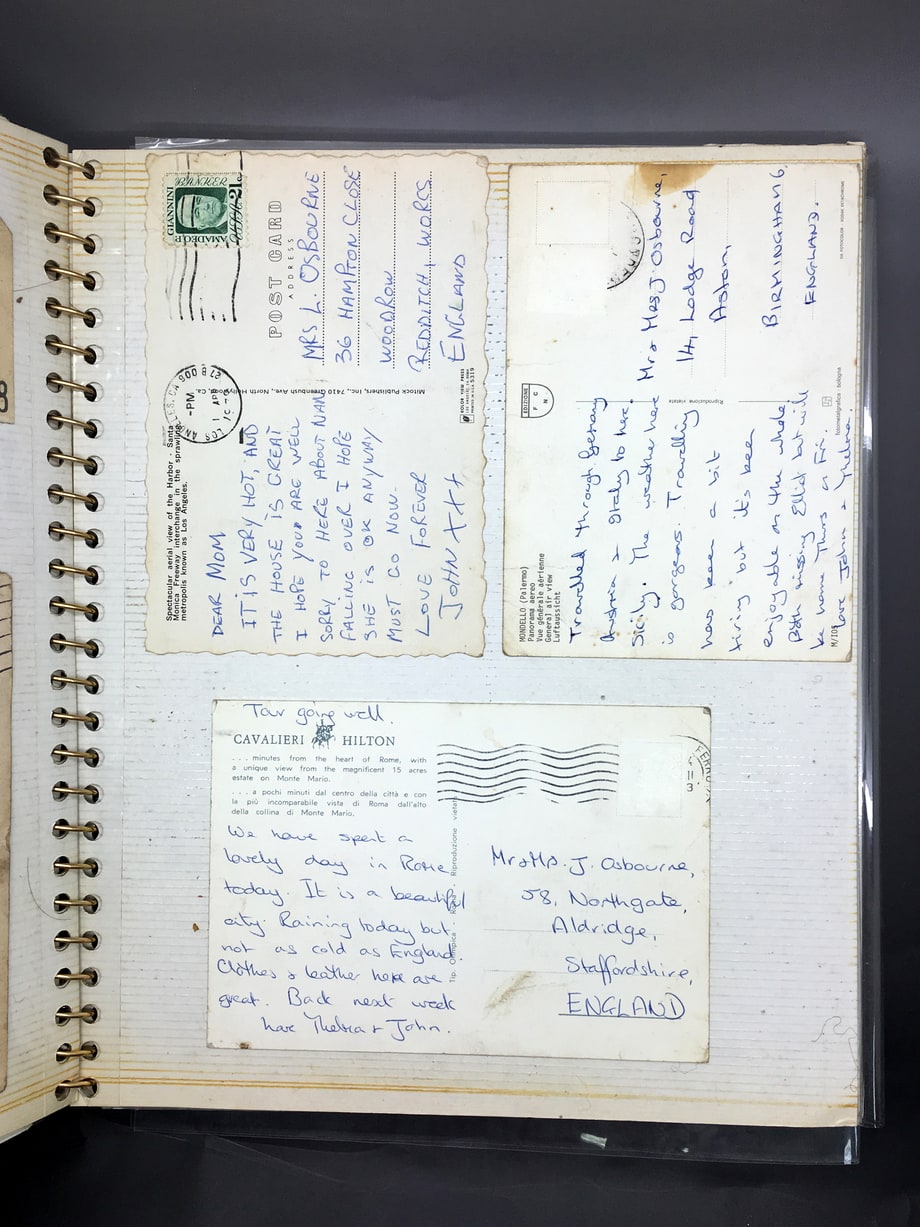 Spectacular aerial view of the Harbor - Santa
Monica Freeway interchange in the sprawling
metropolis known as Los Angeles.
DEAR MOM
IT IS VERY HOT, AND
THE HOUSE IS GREAT
I HOPE YOU ARE WELL
SORRY TO HERE ABOUT NAN
FALLING OVER I HOPE
SHE IS OK ANYWAY
MUST GO NOW.
LOVE FOREVER
JOHN XXX
Mitock Publishers, Inc., 7410 Greenbush Ave., North Hollywood, Ca.
LOS ANGELES, CA
PM
1 APR
AMADEO P. GIANNINI
BANKER
21c
POST CARD
ADDRESS
MRS L. OSBOURNE
36 HAMPTON CLOSE
WOODROW
REDDITCH, WORCS
ENGLAND
KOLOR VIEW PRESS
5319
MONDELLO (Palermo)
Panorama aereo
Vue générale aérienne
General air view
Luftaussicht
Travelled through Germany
Austria & Italy to here.
Sicily. The weather here
is gorgeous. Travelling
has been a bit
tiring but it's been
enjoyable on the whole
Both missing Ellid but will
be home Thurs or Fri.
love John & Thelma.
M/109
EDIZIONI
F C
N
Riproduzione vietata
Fotometalgrafica - bologna
Mr & Mrs J. Osbourne,
14, Lodge Road
Aston,
BIRMINGHAM 6,
ENGLAND.
Tour going well.
CAVALIERI HILTON
. . . minutes from the heart of Rome, with
a unique view from the magnificent 15 acres
estate on Monte Mario.
. . . a pochi minuti dal centro della città e con
la più incomparabile vista di Roma dall'alto
della collina di Monte Mario.
We have spent a
lovely day in Rome
today. It is a beautiful
city. Raining today but
not as cold as England.
Clothes & leather here are
great. Back next week
love Thelma & John.
Tip. Olimpica - Roma - Riproduzione vietata
Mr & Mrs. J. Osbourne,
58, Northgate,
Aldridge,
Staffordshire,
ENGLAND